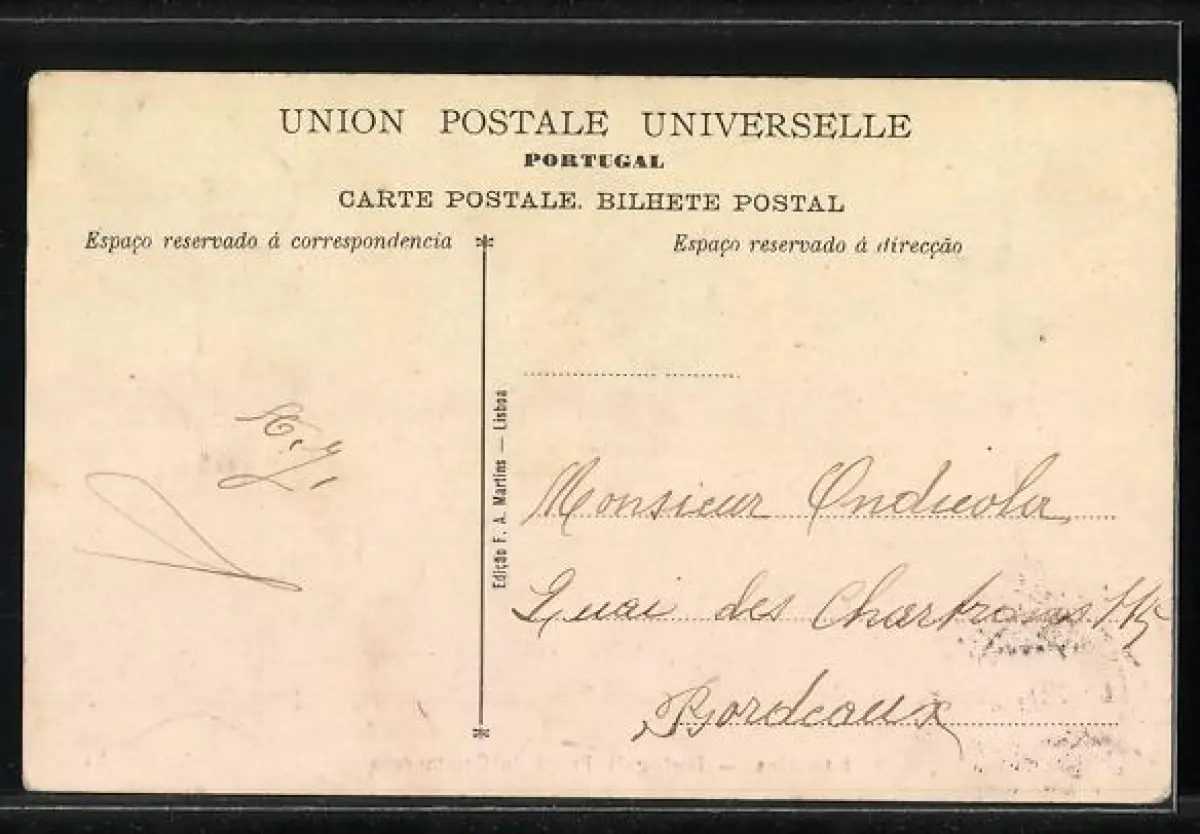 UNION POSTALE UNIVERSELLE
PORTUGAL
CARTE POSTALE. BILHETE POSTAL
Espaço reservado á correspondencia
Espaço reservado á direcção
Edição F. A. Martins — Lisboa
Monsieur
Quai des Chartrons 115
Bordeaux